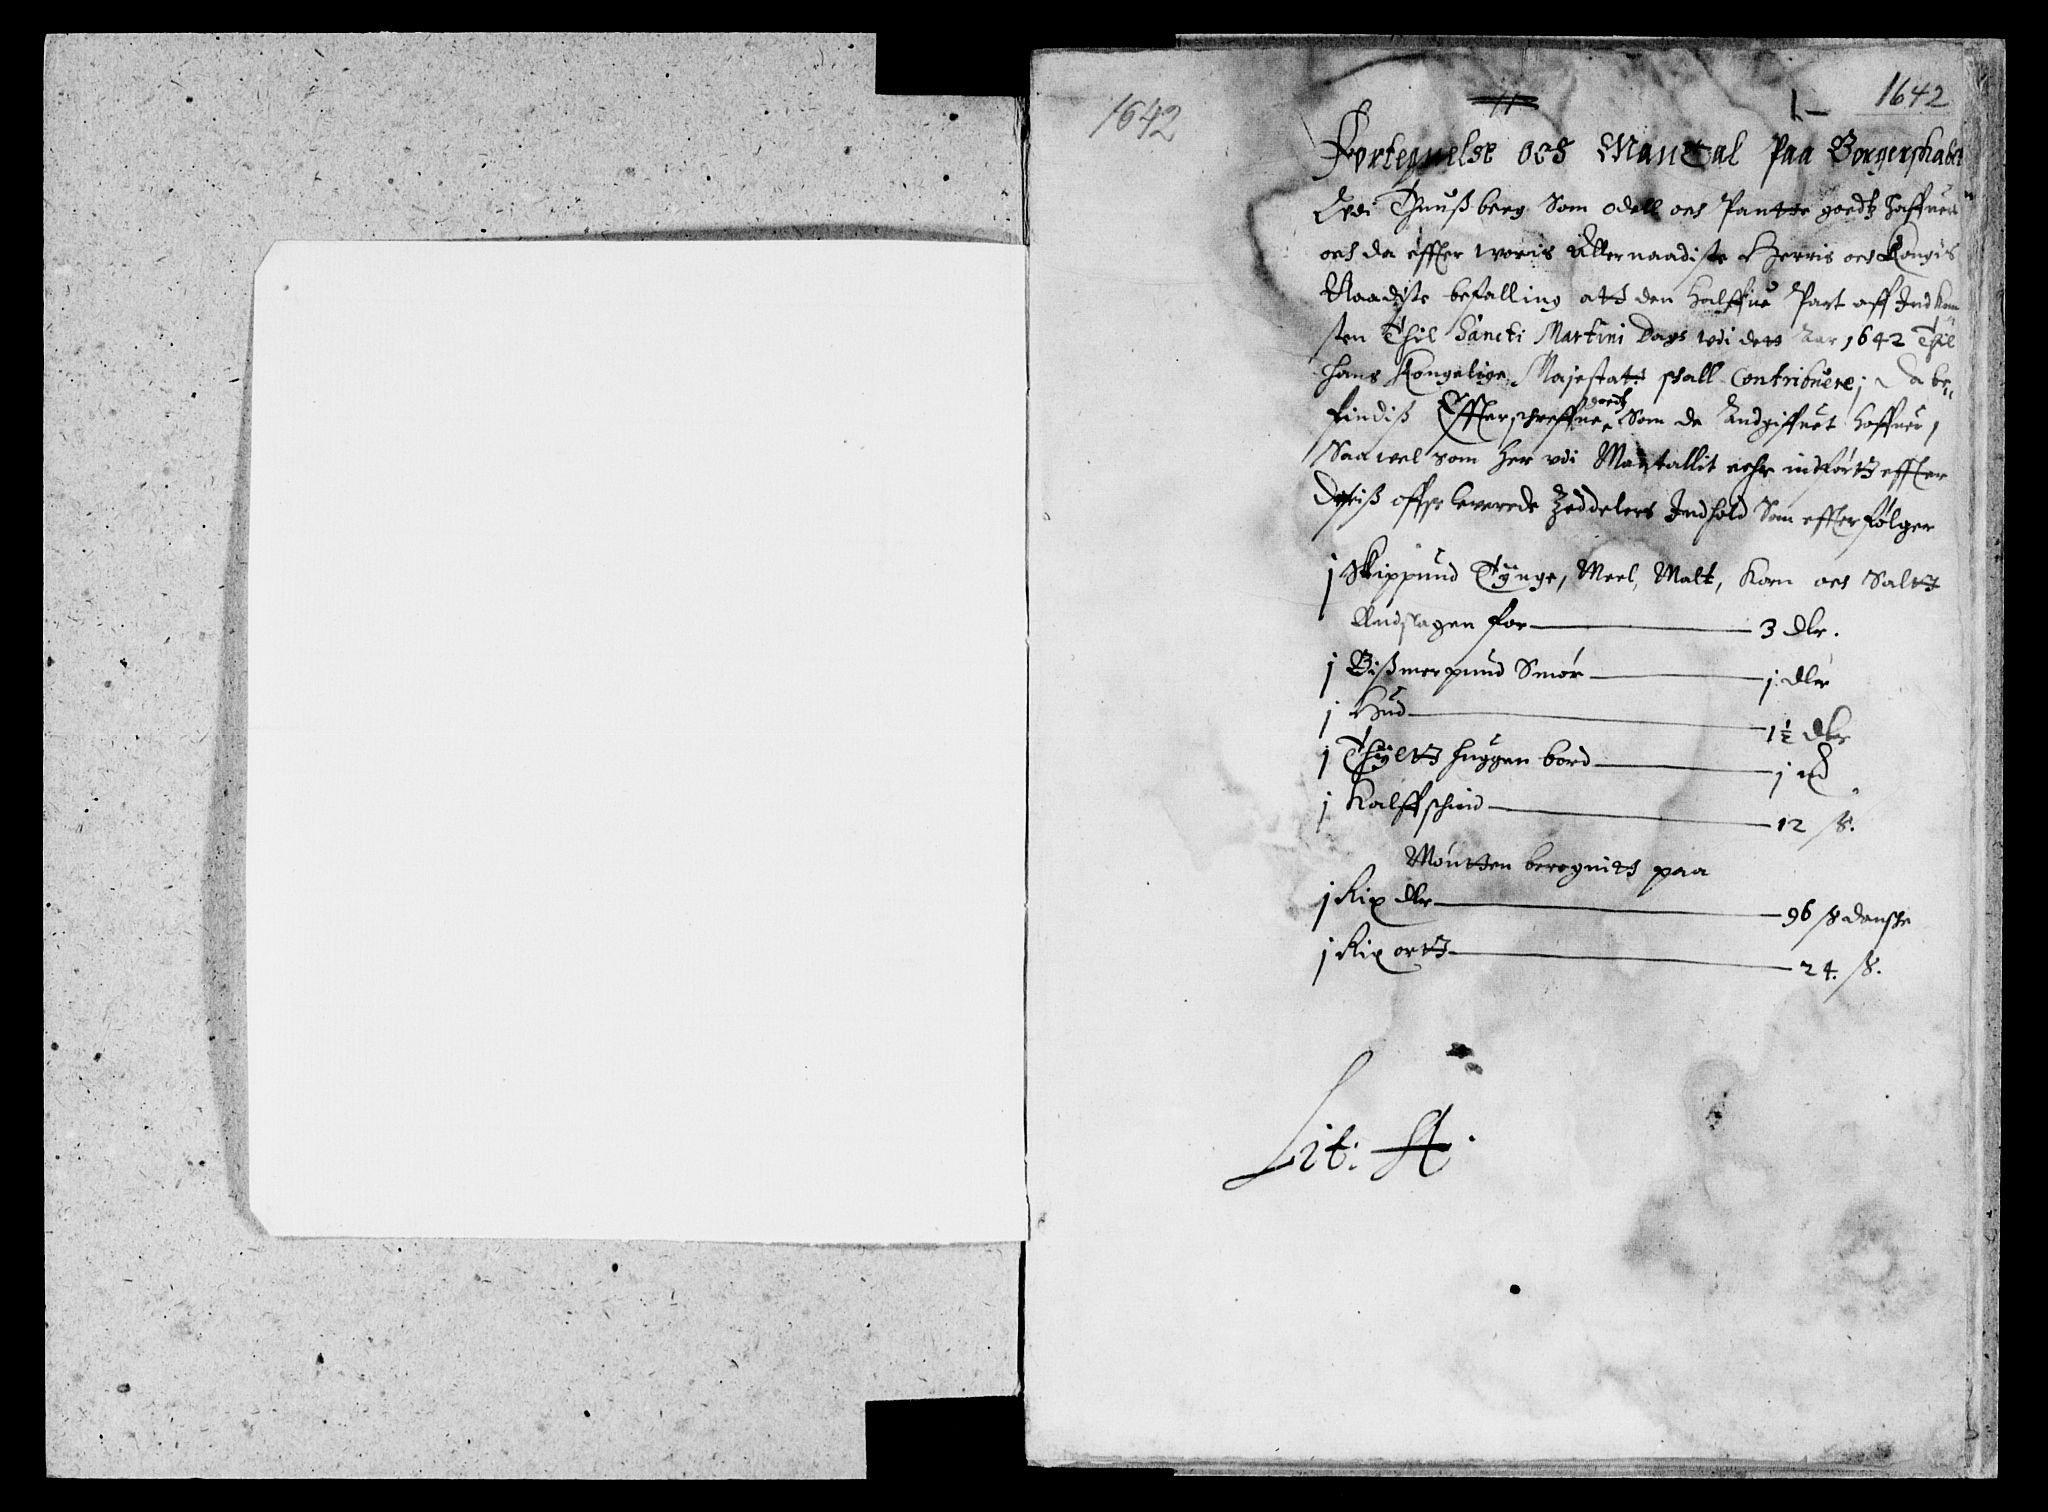 1642
1642
Fortegnelse och Mantal Paa Borgerskabet
Vdi Thunßberg Som odell och Pantte goedtz haffuer
och da effter woris Allernaadiste Herris och Kongis
Naadiste befalling att den halffue Part aff Indkom
sten Thil Sancti Martini Dags vdi dett Aar 1642 Thil
hans Kongelige Majestatt skall Contribuere; Da be,,
findiß Effterschreffne goedtz Som de Andgiffuet haffuer,
Saa vel som her vdi Mantallit ehr indførtt effter
offuerleverede Zeddelers Indhold Som effterfølger
j Skippund Tÿnge, Meel, Malt, Korn och Saltt
Andslagen for 3 dlr.
j Bißmerpund Smør j dlr
j Hud 1½ dlr
j Thÿltt huggen bord j
j Kalffschind 12 ß.
Møntten beregnitt paa
j Rix dlr 96 ß danske
j Rix ortt 24. ß.
Lit: A.